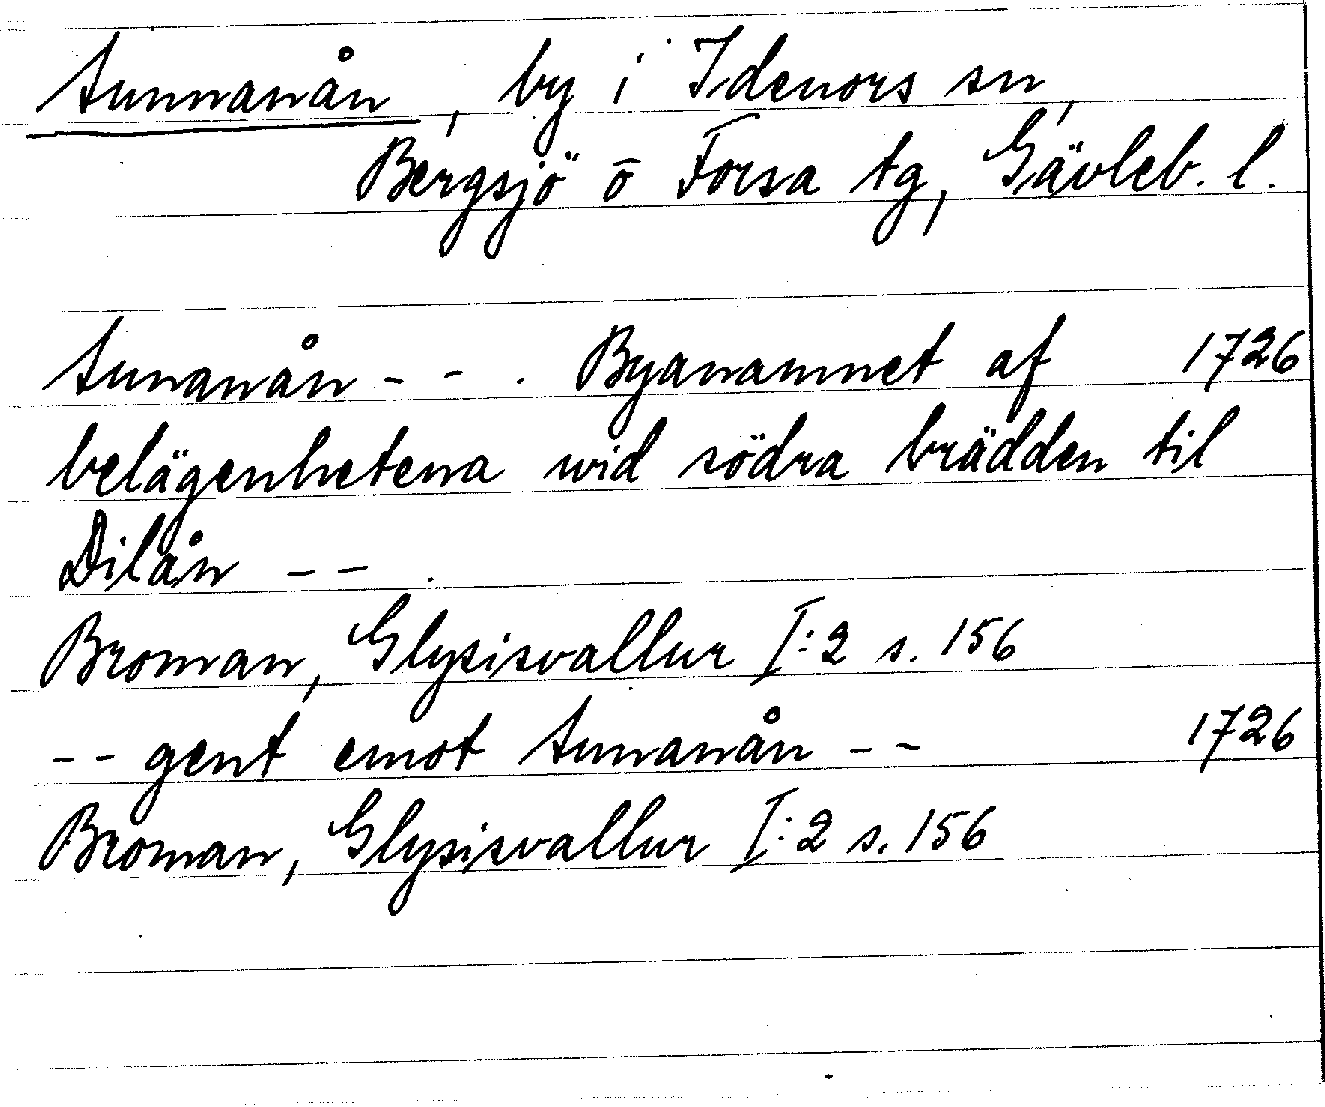 Sunnanån, by i Idenors sn,
Bergsjö o Forsa tg, Gävleb. l.
Sunanån - - . Byanamnet af 1726
belägenhetena wid södra brädden til
Dilån - - .
Broman, Glysisvallur I:2 s. 156
- - gent emot Sunanån - - 1726
Broman, Glysisvallur I:2 s. 156